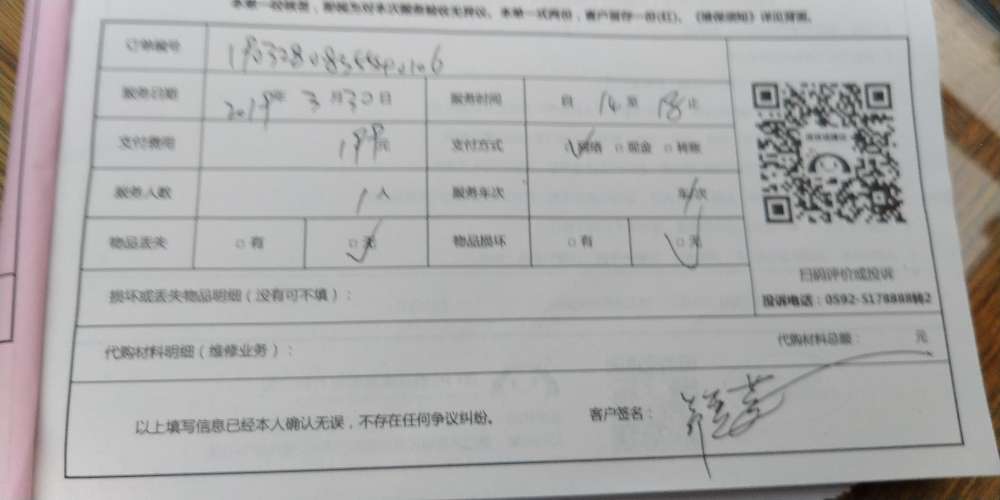 本单一经核签，即视为对本次服务验收无异议。本单一式两份，客户留存一份(红)。《维保须知》详见背面。
订单编号
服务日期 2019年 3月30日 服务时间 自 14 至 18 止
支付费用 199元 支付方式 □网络 □现金 □转账
服务人数 1人 服务车次 车/次
物品丢失 □有 □无 物品损坏 □有 □无
扫码评价或投诉
投诉电话：0592-5178888转2
损坏或丢失物品明细（没有可不填）：
代购材料明细（维修业务）： 代购材料总额： 元
以上填写信息已经本人确认无误，不存在任何争议纠纷。 客户签名：